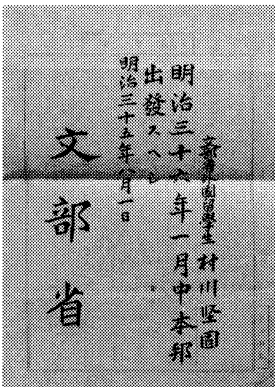 國留學生 村川堅固
明治三十六年一月中本邦
出發スヘシ
明治三十五年八月一日
文部省